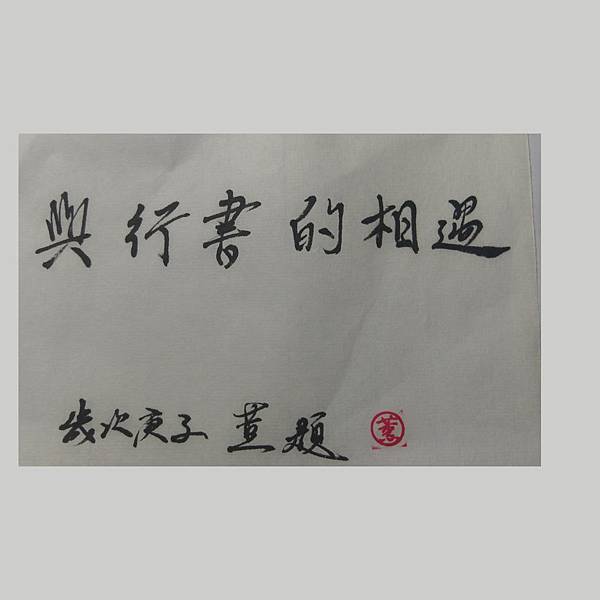 與行書的相遇
歲次庚子 萱題